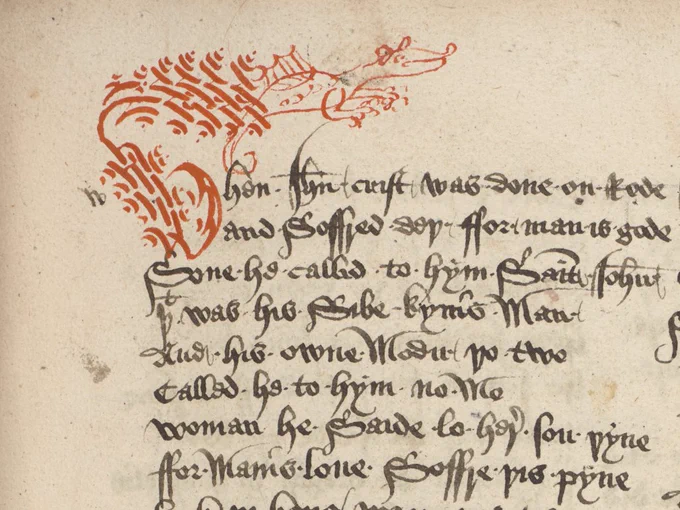 When Ihu crist was done on Rode
and Soffred dey ffor man is gode
Sone he callid to hym Saint Iohn
þt was his Sibe kynns Man
And his owne Modir þo two
Called he to hym no Mo
woman he Saide lo her son þyne
ffor Manns loue Soffre þis pyne